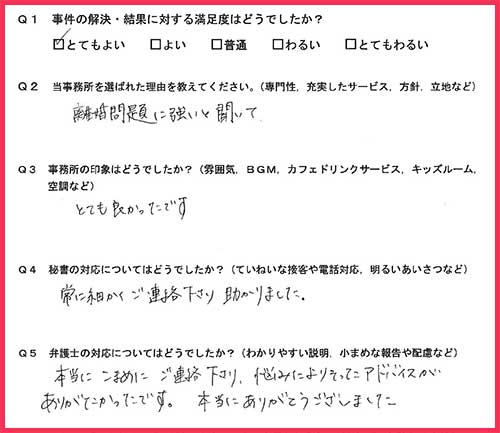 Q1 事件の解決・結果に対する満足度はどうでしたか？
☑とてもよい □よい □普通 □わるい □とてもわるい
Q2 当事務所を選ばれた理由を教えてください。（専門性，充実したサービス，方針，立地など）
離婚問題に強いと聞いて
Q3 事務所の印象はどうでしたか？（雰囲気，BGM，カフェドリンクサービス，キッズルーム，
空調など）
とても良かったです
Q4 秘書の対応についてはどうでしたか？（ていねいな接客や電話対応，明るいあいさつなど）
常に細かくご連絡下さり 助かりました。
Q5 弁護士の対応についてはどうでしたか？（わかりやすい説明，小まめな報告や配慮など）
本当に こまめに ご連絡下さり、悩みによりそったアドバイスが
ありがたかったです。 本当にありがとうございました